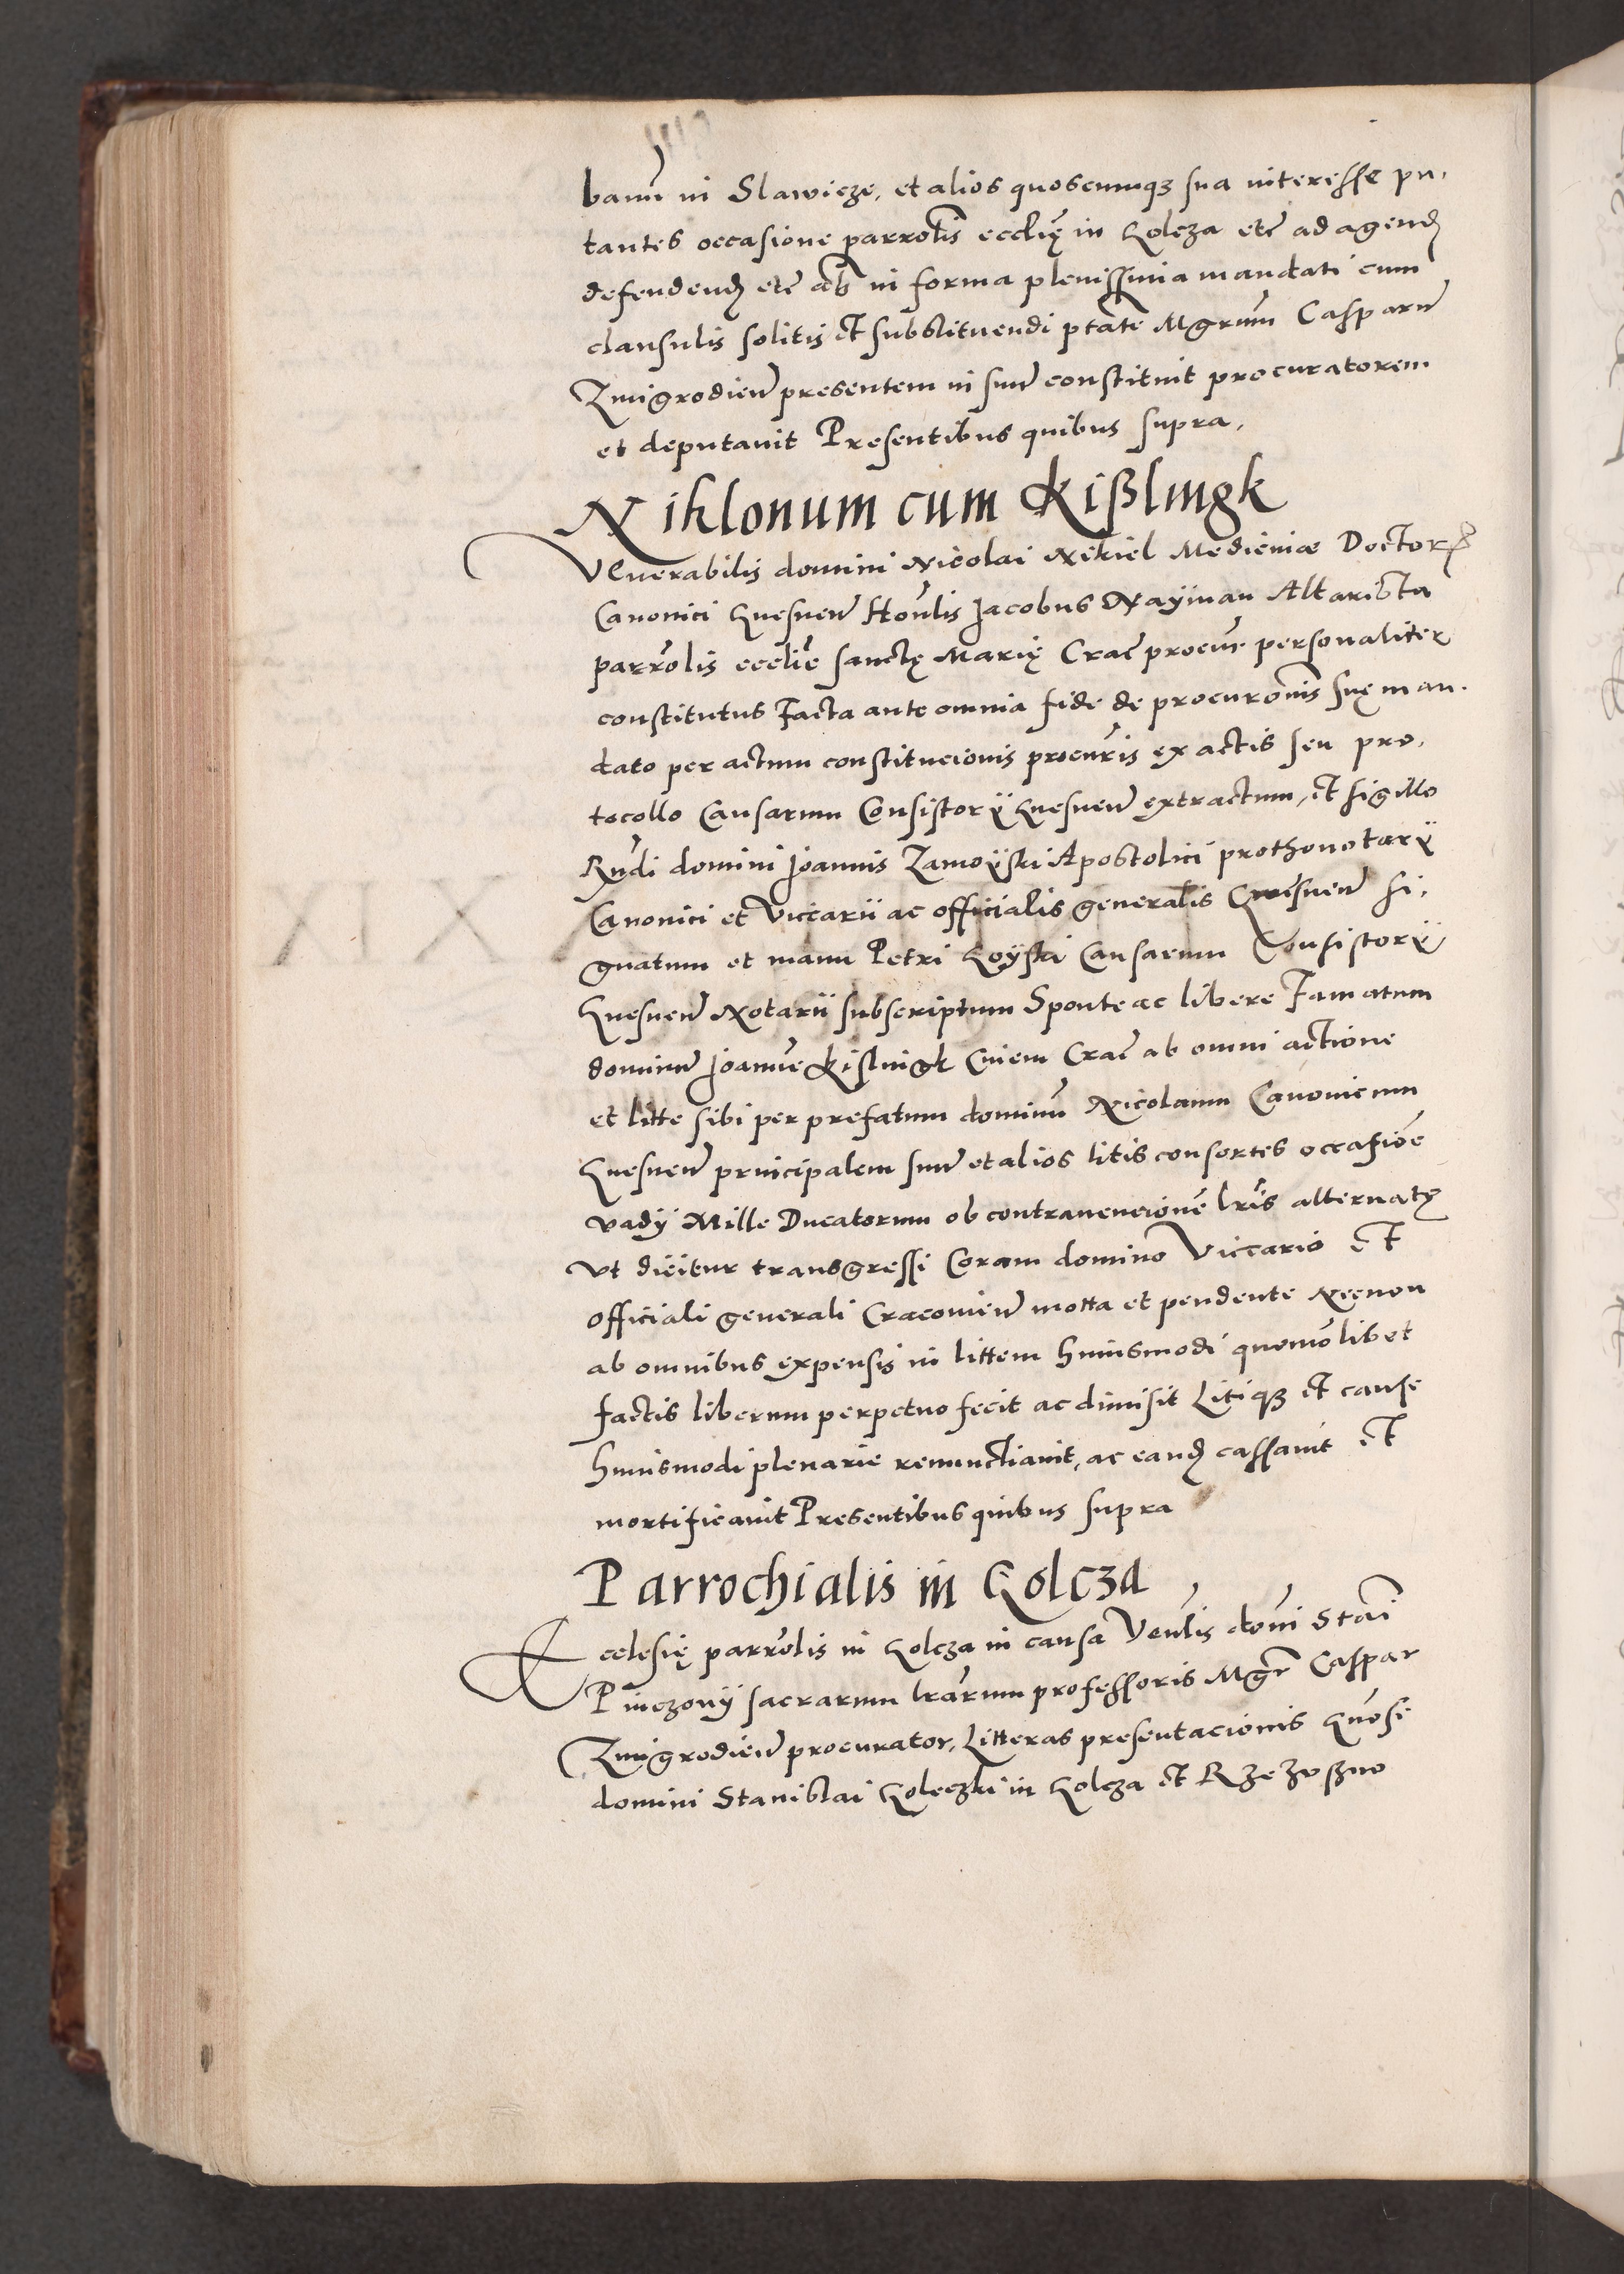 banū in Slawicze, et alios quoscumqȝ sua interesse pu,
tantes occasione parrolis ecclię in Golcza etc̄ ad agend
defendend etc̄ ab in forma plenissima mandati cum
clausulis solitis et substituendi ptate Mgrum Casparū
Zmigrodien presentem in suū constituit procuratorem
et deputauit Presentibus quibus supra,
Niklonum cum Kißlingk
VEnerabilis domini Nicolai Nikiel Medicinæ Doctoris
Canonici Gnesnen Honlis Jacobus Nayman Altarista
parrolis ecclie sanctę Marię Crac̄ procur personaliter
constitutus Facta ante omnia fide de procuronis suę man.
dato per actum constitucionis procuris ex actis seu pro,
tocollo Causarum Consistorÿ Gnesnen extractum, et sigillo
Rndi domini Joannis Zamoÿski Apostolici prothonotarÿ
Canonici et Viccarii ac officialis generalis Gnesnen si,
gnatum et manu Petri Goÿski Causarum Consistorÿ
Gnesnen Notarii subscriptum Sponte ac libere Famatum
dominū Joannē Kislingk Ciuem Crac̄ ab omni actione
et litte sibi per prefatum dominū Nicolaum Canonicum
Gnesnen principalem suū et alios litis consortes occasiōe
vadÿ Mille Ducatorum ob contrauencionē lris alternatę
vt dicitur transgressi Coram domino Viccario et
officiali generali Cracouien motta et pendente Necnon
ab omnibus expensis in littem huiusmodi quomolibet
factis liberum perpetuo fecit ac dimisit Litiqȝ et cause
huiusmodi plenarie renunctiauit, ac eand cassauit et
mortificauit Presentibus quibus supra
Parrochialis in Golcza
Ecclesię parrolis in Golcza in causa Venlis domi Stani
Pinczonÿ sacrarum lrarum professoris Mgr Caspar
Zmigrodien procurator, Litteras presentacionis Gnosi
domini Stanislai Goleczki in Golcza et Rzezvszno